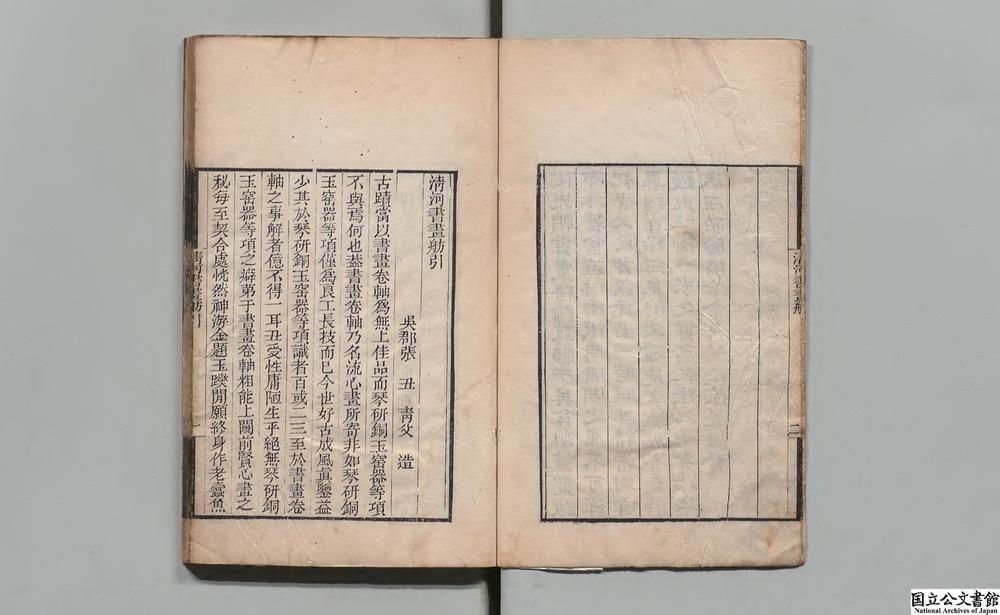 清河書畫舫
二
清河書畫舫引
吳郡張　丑　靑父　造
古蹟當以書畫卷軸爲無上佳品而琴硏銅玉窑器等項
不與焉何也葢書畫卷軸乃名流心畫所寄非如琴硏銅
玉窑器等項僅爲良工長技而已今世好古成風眞鑒益
少其於琴硏銅玉窑器等項識者百或二三至於書畫卷
軸之事解者億不得一耳丑受性庸陋生乎絕無琴硏銅
玉窑器等項之癖第于書畫卷軸粗能上闚前賢心畫之
秘每至契合處恍然神游金題玉躞閒願終身作老蠧魚
清河書畫舫引
一
国立公文書館
National Archives of Japan